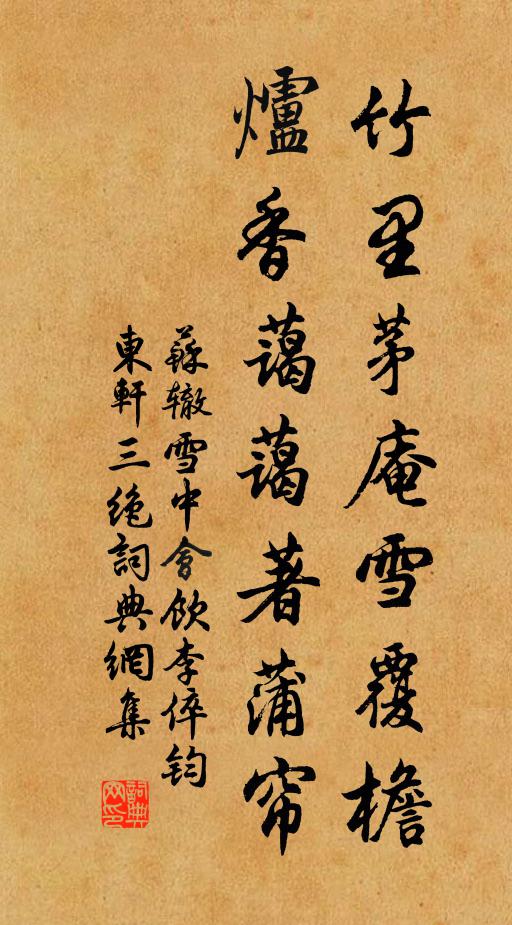 竹里茅庵雪覆檐
爐香藹藹著蒲帘
蘇辙雪中會飲李倅钧
東軒三絶詞典網集
詞典網印